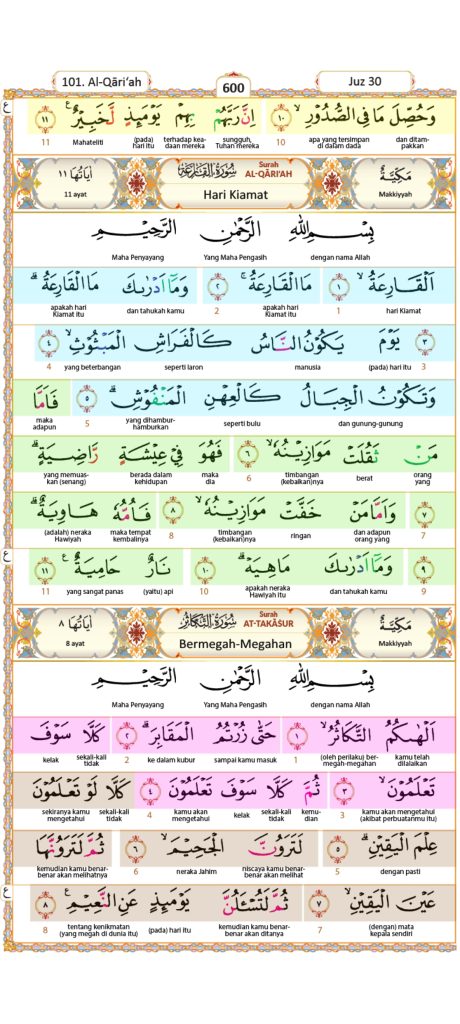 101. Al-Qāri‘ah
600
Juz 30
ع
وَحُصِّلَ مَا فِى الصُّدُوْرِۙ ١٠ اِنَّ رَبَّهُمْ بِهِمْ يَوْمَىِٕذٍ لَّخَبِيْرٌ ࣖ ١١
dan ditam-pakkan apa yang tersimpan di dalam dada 10 sungguh, Tuhan mereka terhadap kea-daan mereka (pada) hari itu Mahateliti 11
مَكِّيَّةٌ
Makkiyyah
سُوْرَةُ الْقَارِعَةِ
Surah
AL-QĀRI'AH
Hari Kiamat
اٰيَاتُهَا ١١
11 ayat
بِسْمِ اللّٰهِ الرَّحْمٰنِ الرَّحِيْمِ
dengan nama Allah Yang Maha Pengasih Maha Penyayang
اَلْقَارِعَةُۙ ١ مَا الْقَارِعَةُۚ ٢ وَمَآ اَدْرٰىكَ مَا الْقَارِعَةُۗ
hari Kiamat 1 apakah hari Kiamat itu 2 dan tahukah kamu apakah hari Kiamat itu
٣ يَوْمَ يَكُوْنُ النَّاسُ كَالْفَرَاشِ الْمَبْثُوْثِۙ ٤
3 (pada) hari itu manusia seperti laron yang beterbangan 4
وَتَكُوْنُ الْجِبَالُ كَالْعِهْنِ الْمَنْفُوْشِۗ ٥ فَاَمَّا
dan gunung-gunung seperti bulu yang dihambur-hamburkan 5 maka adapun
مَنْ ثَقُلَتْ مَوَازِيْنُهٗۙ ٦ فَهُوَ فِيْ عِيْشَةٍ رَّاضِيَةٍۗ
orang yang berat timbangan (kebaikan)nya 6 maka dia berada dalam kehidupan yang memuas-kan (senang)
٧ وَاَمَّا مَنْ خَفَّتْ مَوَازِيْنُهٗۙ ٨ فَاُمُّهٗ هَاوِيَةٌۗ
7 dan adapun orang yang ringan timbangan (kebaikan)nya 8 maka tempat kembalinya (adalah) neraka Hawiyah
ع
٩ وَمَآ اَدْرٰىكَ مَا هِيَهْۗ ١٠ نَارٌ حَامِيَةٌ ࣖ ١١
9 dan tahukah kamu apakah neraka Hawiyah itu 10 (yaitu) api yang sangat panas 11
مَكِّيَّةٌ
Makkiyyah
سُوْرَةُ التَّكَاثُرِ
Surah
AT-TAKĀSUR
Bermegah-Megahan
اٰيَاتُهَا ٨
8 ayat
بِسْمِ اللّٰهِ الرَّحْمٰنِ الرَّحِيْمِ
dengan nama Allah Yang Maha Pengasih Maha Penyayang
اَلْهٰىكُمُ التَّكَاثُرُۙ ١ حَتّٰى زُرْتُمُ الْمَقَابِرَۗ ٢ كَلَّا سَوْفَ
kamu telah dilalaikan (oleh perilaku) ber-megah-megahan 1 sampai kamu masuk ke dalam kubur 2 sekali-kali tidak kelak
تَعْلَمُوْنَۙ ٣ ثُمَّ كَلَّا سَوْفَ تَعْلَمُوْنَ ٤ كَلَّا لَوْ تَعْلَمُوْنَ
kamu akan mengetahui (akibat perbuatanmu itu) 3 kemu-dian sekali-kali tidak kelak kamu akan mengetahui 4 sekali-kali tidak sekiranya kamu mengetahui
عِلْمَ الْيَقِيْنِۗ ٥ لَتَرَوُنَّ الْجَحِيْمَۙ ٦ ثُمَّ لَتَرَوُنَّهَا
dengan pasti 5 niscaya kamu benar-benar akan melihat neraka Jahim 6 kemudian kamu benar-benar akan melihatnya
ع
عَيْنَ الْيَقِيْنِۙ ٧ ثُمَّ لَتُسْـَٔلُنَّ يَوْمَىِٕذٍ عَنِ النَّعِيْمِ ࣖ ٨
(dengan) mata kepala sendiri 7 kemudian kamu benar-benar akan ditanya (pada) hari itu tentang kenikmatan (yang megah di dunia itu) 8